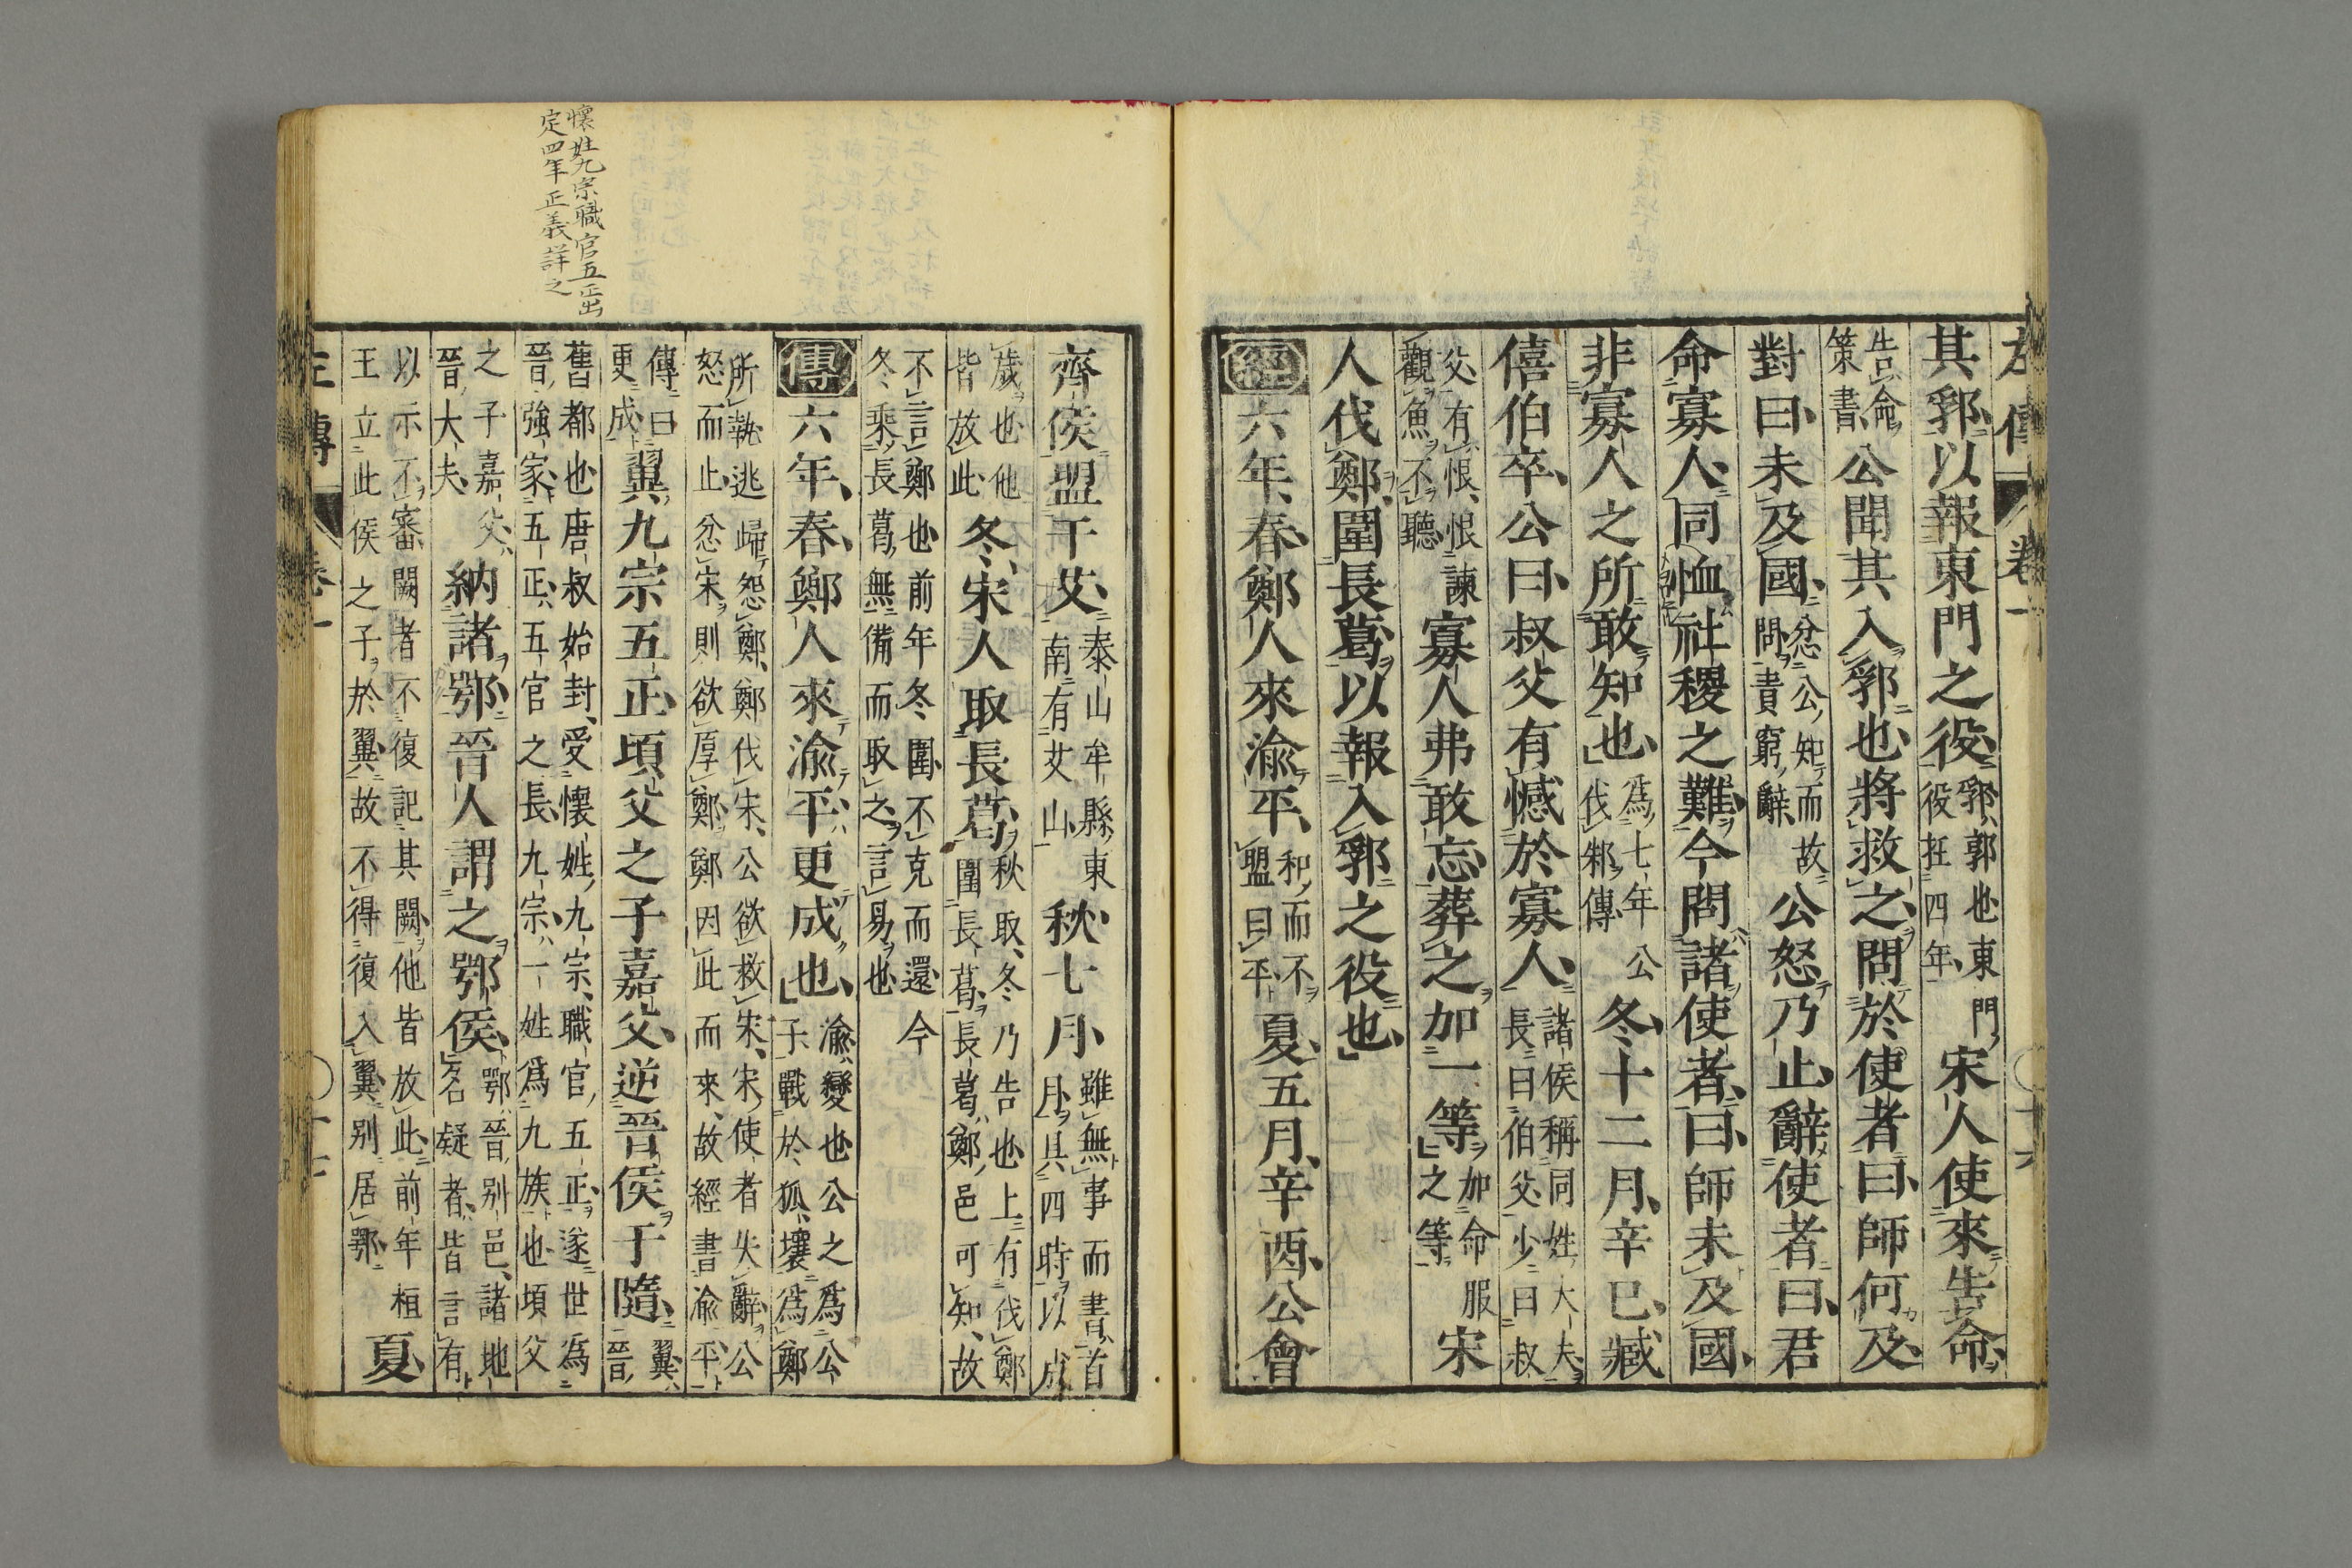 左傳 卷一 ○十六
其郛以報東門之役郛郭也東門役在四年宋人使來告命
告命策書公聞其入郛也將救之問於使者曰師何及
對曰未及國忿公知而故問責窮辭公怒乃止辭使者曰君
命寡人同恤社稷之難今問諸使者曰師未及國
非寡人之所敢知也爲七年公伐邾傳冬十二月辛巳臧
僖伯卒公曰叔父有憾於寡人諸侯稱同姓大夫長曰伯父少曰叔
父有恨恨諫觀魚不聽寡人弗敢忘葬之加一等加命服之等宋
人伐鄭圍長葛以報入郛之役也
經六年春鄭人來渝平和而不盟曰平夏五月辛酉公會
齊侯盟于艾泰山牟縣東南有艾山秋七月雖無事而書首月具四時以成
歲也他皆放此冬宋人取長葛秋取冬乃告也上有伐鄭圍長葛長葛鄭邑可知故
不言鄭也前年冬圍不克而還今冬乘長葛無備而取之言易也
傳六年春鄭人來渝平更成也渝變也公之爲公子戰於狐壤爲鄭
所執逃歸怨鄭鄭伐宋公欲救宋宋使者失辭公怒而止忿宋則欲厚鄭鄭因此而來故經書渝平
傳曰更成翼九宗五正頃父之子嘉父逆晉侯于隨翼晉
舊都也唐叔始封受懷姓九宗職官五正遂世爲晉強家五正五官之長九宗一姓爲九族也頃父
之子嘉父晉大夫納諸鄂晉人謂之鄂侯鄂晉別邑諸地名疑者皆言有
以示不審闕者不復記其闕他皆放此前年桓王立此侯之子於翼故不得復入翼別居鄂夏
左傳 卷一 ○十七
懷姓九宗職官五正出
定四年正義詳之